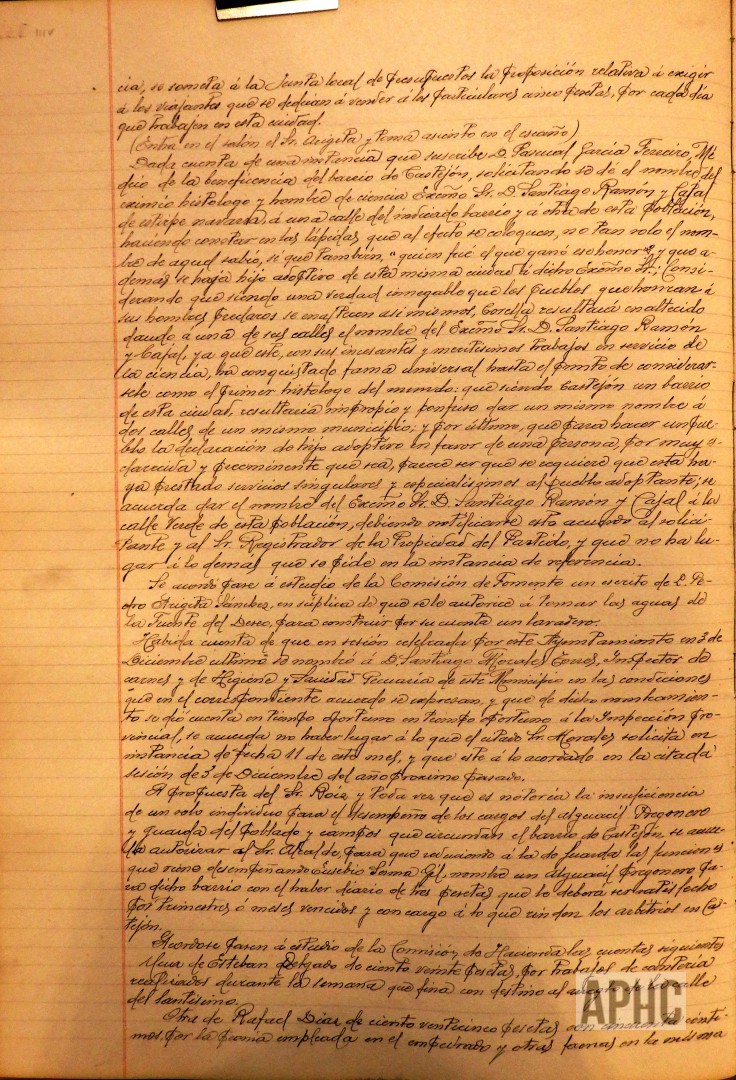 cia, se someta á la Junta local de Presupuestos la proposición relativa á exigir
á los viajantes que se dedican á vender á los particulares cinco pesetas, por cada día
que trabajen en esta ciudad.
(Entra en el salón el Sr. Arigita y toma asiento en el escaño)
Dada cuenta de una instancia que suscribe D. Pascual García Ferreiro, Mé
dico de la beneficencia del barrio de Castejón, solicitando se dé el nombre del
eximio histologo y hombre de ciencia Excmo Sr. D. Santiago Ramón y Cajal
de estirpe navarra, á una calle del indicado barrio y a otra de esta Población,
haciendo constar en las lápidas que al efecto se coloquen, no tan solo el nom-
bre de aquel sabio, si que tambien, "quien fué el que ganó ese honor", y que a-
demás se haga hijo adoptivo de esta misma ciudad á dicho Excmo Sr.; Consi-
derando que siendo una verdad innegable que los Pueblos que honran á
sus hombres preclaros se enaltecen asi mismos, Corella resultará enaltecido
dando á una de sus calles el nombre del Excmo Sr. D. Santiago Ramón
y Cajal, ya que este, con sus incesantes y meritisimos trabajos en servicio de
la ciencia, ha conquistado fama universal hasta el punto de considerar-
sele como el primer histologo del mundo: que siendo Castejón un barrio
de esta ciudad, resultaria impropio y confuso dar un mismo nombre á
dos calles de un mismo municipio; y por último, que para hacer un pue-
blo la declaración de hijo adoptivo en favor de una persona, por muy es-
clarecida y preeminente que sea, parece ser que se requiere que esta ha-
ya prestado servicios singulares y especialisimos al Pueblo adoptante; se
acuerda dar el nombre del Excmo Sr. D. Santiago Ramón y Cajal á la
calle Verde de esta población, debiendo notificarse este acuerdo al solici-
tante y al Sr. Registrador de la Propiedad del Partido, y que no ha lu-
gar á lo demas que se pide en la instancia de referencia.
Se acordó pase á estudio de la Comisión de Fomento un escrito de D. Pe-
dro Arigita Sánchez, en súplica de que se le autorice á tomar las aguas de
la Fuente del Deseo, para construir por su cuenta un lavadero.
Habida cuenta de que en sesión celebrada por este Ayuntamiento en 3 de
Diciembre ultimo se nombró á D. Santiago Morales Inspector de
carnes y de Higiene y Sanidad Pecuaria de este Municipio en las condiciones
que en el correspondiente acuerdo se expresan, y que de dicho nombramien-
to se dió cuenta en tiempo oportuno en tiempo oportuno á la Inspección Pro-
vincial, se acuerda no haber lugar á lo que el citado Sr. Morales solicita en
instancia de fecha 11 de este mes, y que esté á lo acordado en la citada
sesión de 3 de Diciembre del año proximo pasado.
A propuesta del Sr. y toda vez que es notoria la insuficiencia
de un solo individuo para el desempeño de los cargos del alguacil Pregonero
y guarda del poblado y campos que circundan el barrio de Castejón, se acuer-
da autorizar al Sr. Alcalde, para que reduciendo á la de Guarda las funciones
que viene desempeñando Eusebio Gil, nombre un alguacil pregonero pa-
ra dicho barrio con el haber diario de tres pesetas que le deberá ser satisfecho
por trimestres ó meses vencidos y con cargo á lo que rindan los arbitrios en Cas-
tejón.
Acordose pasen á estudio de la Comisión de Hacienda las cuentas siguientes
Una de Esteban Delgado de ciento veinte pesetas, por trabajos de canteria
realizados durante la semana que fina con destino al calle
del Santisimo.
Otra de Rafael Diaz de ciento venticinco pesetas con cuarenta cénti-
mos, por la empleada en el empedrado y otras faenas en la misma
APHC